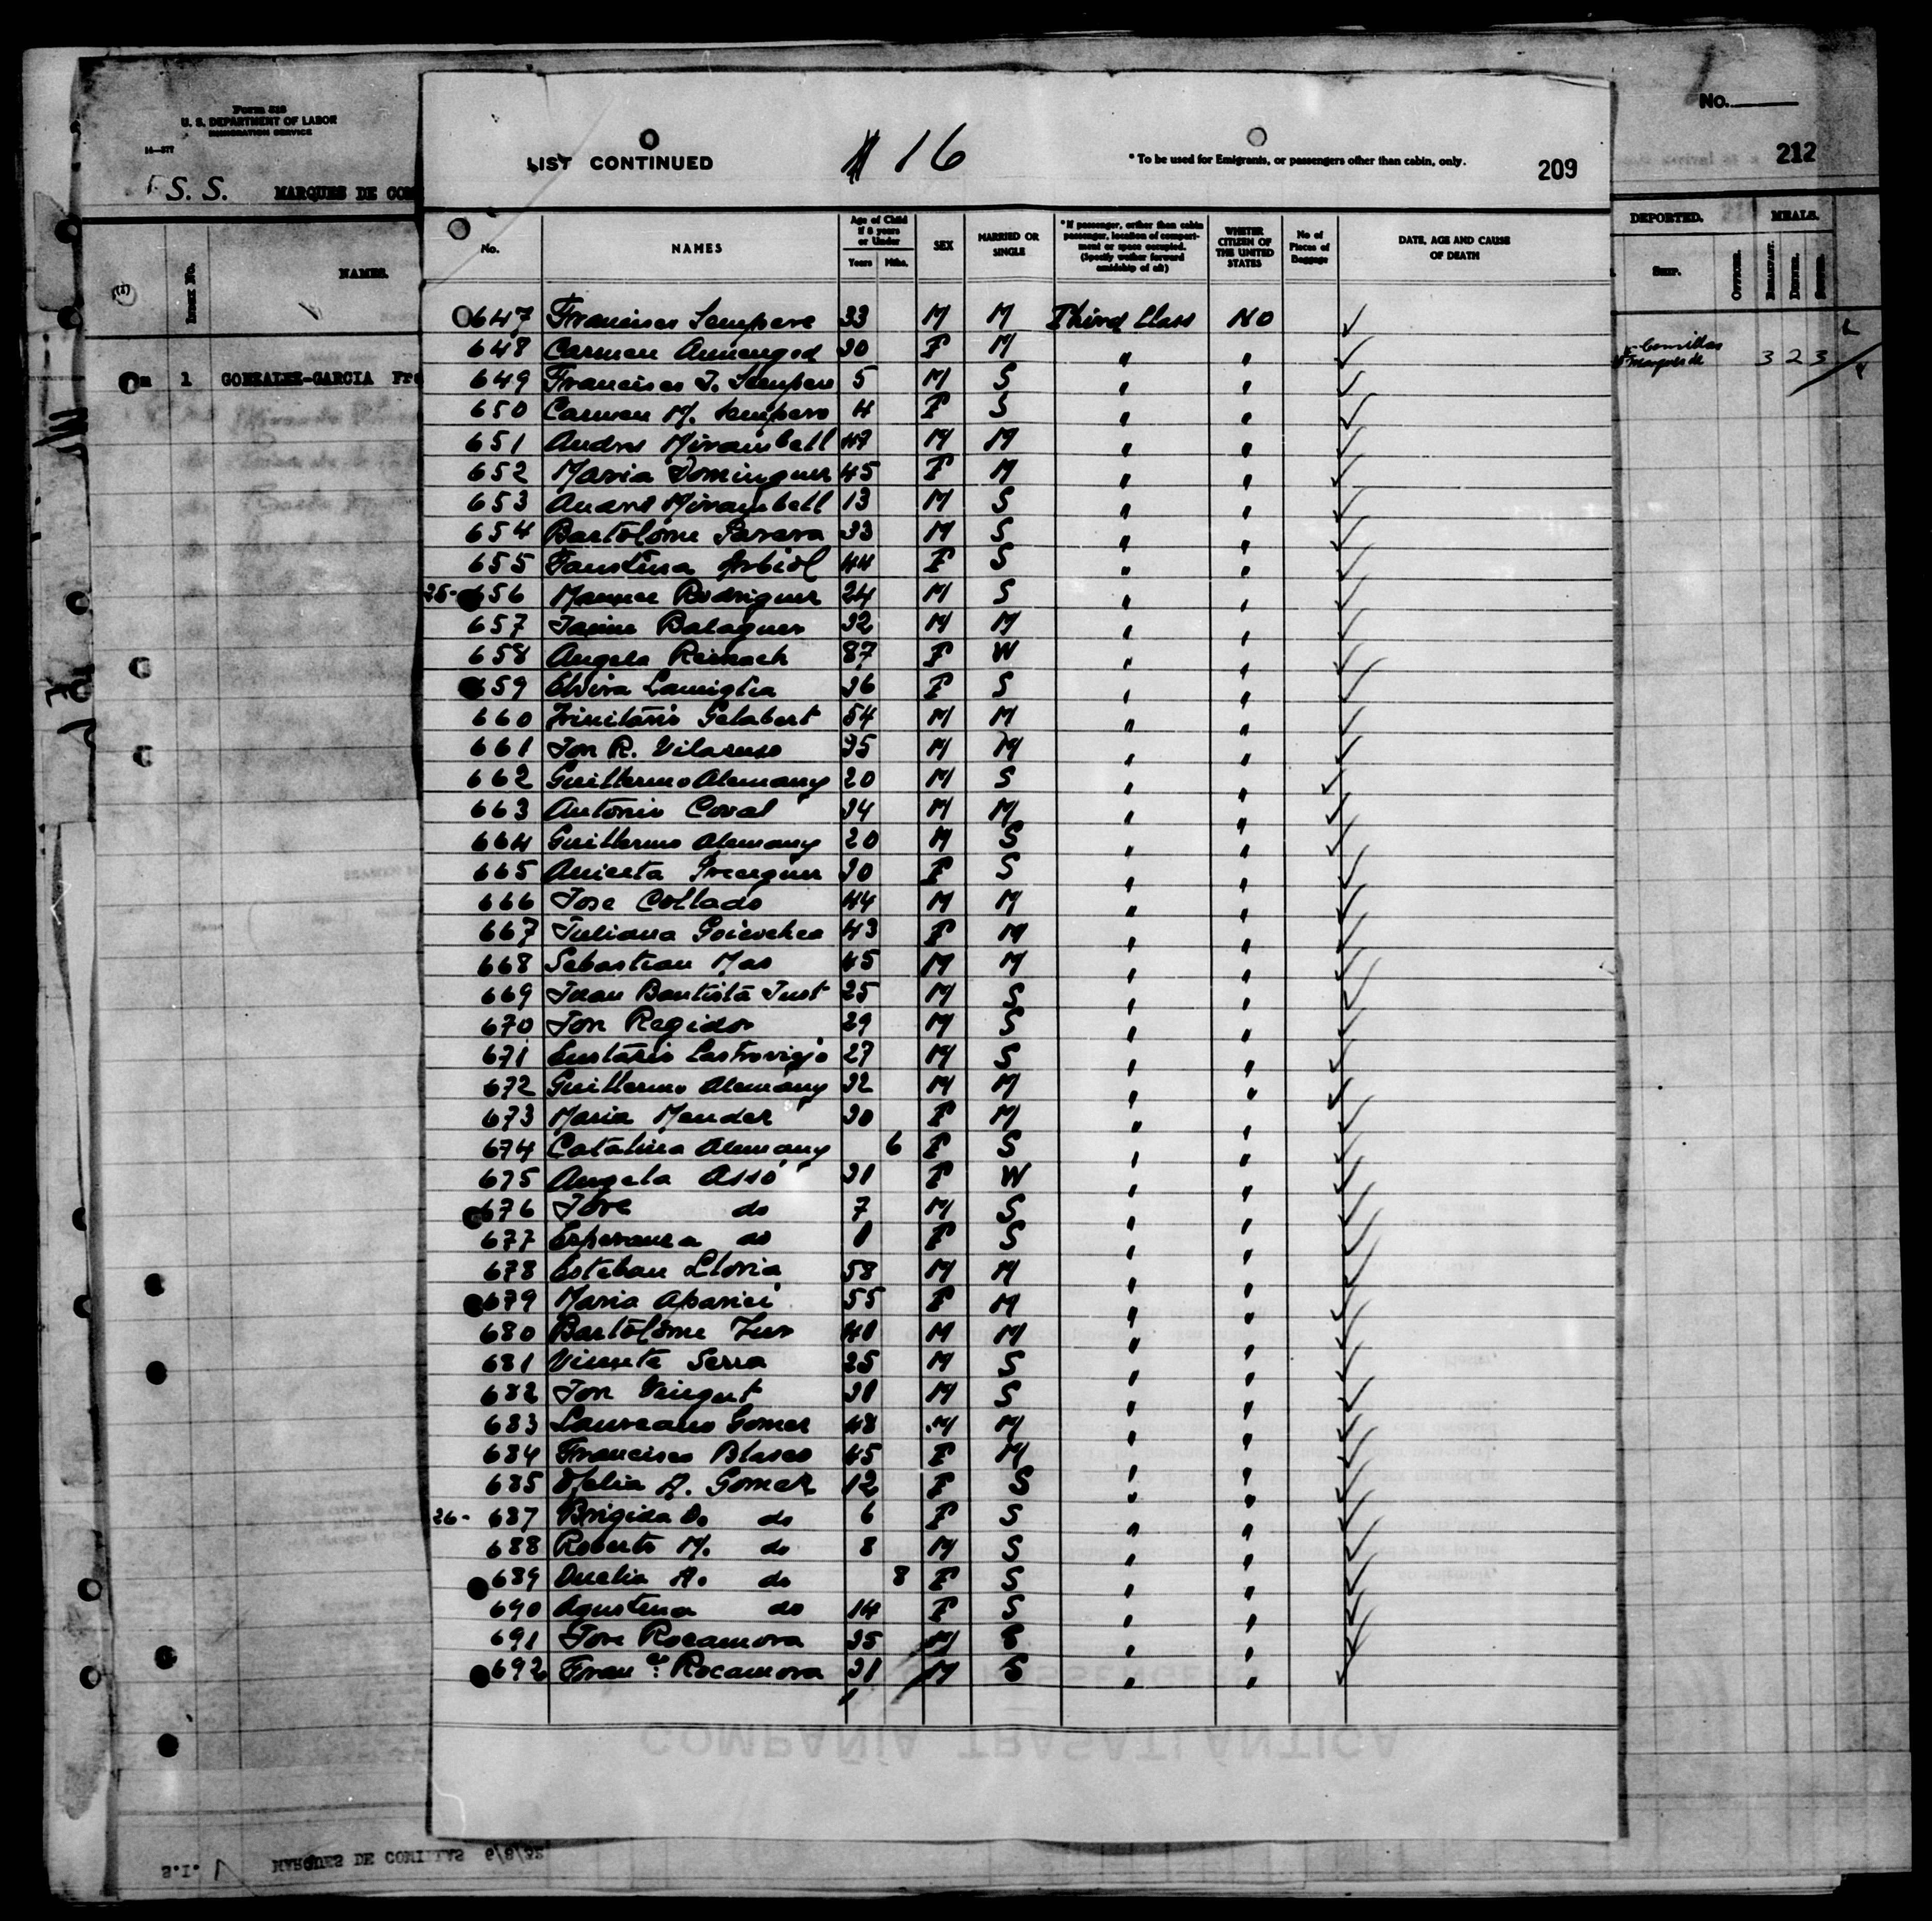 Form 518
U. S. DEPARTMENT OF LABOR
IMMIGRATION SERVICE
14—577
S. S. MARQUES DE COM
INDEX No.
NAMES.
1 GONZALEZ-GARCIA Fr
LIST CONTINUED
# 16
* To be used for Emigrants, or passengers other than cabin, only.
209
No. NAMES Age of Child if 8 years or Under Years Mths. SEX MARRIED OR SINGLE * If passenger, orther than cabin passenger, location of compartment or space occupied. (Specify wether forward amidship of aft) WHETER CITIZEN OF THE UNITED STATES No of Pieces of Baggage DATE, AGE AND CAUSE OF DEATH
647 Francisco Sempere 33 M M Third Class No ✓
648 Carmen Armengod 30 F M " " ✓
649 Francisco J. Sempere 5 M S " " ✓
650 Carmen M. Sempere 4 F S " " ✓
651 Andres Mirambell 47 M M " " ✓
652 Maria Dominguez 45 F M " " ✓
653 Andres Mirambell 13 M S " " ✓
654 Bartolome Parera 33 M S " " ✓
655 Faustina Arbiol 44 F S " " ✓
25- 656 Manuel Rodriguez 24 M S " " ✓
657 Jaime Balaguer 32 M M " " ✓
658 Angela Reinach 87 F W " " ✓
659 Elvira Lamiglia 36 F S " " ✓
660 Trinitario Gelabert 54 M M " " ✓
661 Jose R. Vilasuso 35 M M " " ✓
662 Guillermo Alemany 20 M S " " ✓
663 Antonio Coval 34 M M " " ✓
664 Guillermo Alemany 20 M S " " ✓
665 Aniceta 30 F S " " ✓
666 Jose Collado 44 M M " " ✓
667 Juliana Goicochea 43 F M " " ✓
668 Sebastian Mas 45 M M " " ✓
669 Juan Bautista Just 25 M S " " ✓
670 Jose Regidor 29 M S " " ✓
671 Eustasio Castroviejo 27 M S " " ✓
672 Guillermo Alemany 32 M M " " ✓
673 Maria Mendez 30 F M " " ✓
674 Catalina Alemany 6 F S " " ✓
675 Angela Asso 31 F W " " ✓
676 Jose do 7 M S " " ✓
677 Esperanza do 1 F S " " ✓
678 Esteban Lloria 58 M M " " ✓
679 Maria Aparici 55 F M " " ✓
680 Bartolome 41 M M " " ✓
681 Vicente Serra 25 M S " " ✓
682 Jose Vingut 31 M S " " ✓
683 Laureano Gomez 48 M M " " ✓
684 Francisca Blasco 45 F M " " ✓
685 Ofelia A. Gomez 12 F S " " ✓
26- 687 Brigida D. do 6 F S " " ✓
688 Roberto M. do 8 M S " " ✓
689 Ouelia A. do 8 F S " " ✓
690 Agustina do 14 F S " " ✓
691 Jose Rocamora 35 M S " " ✓
692 Franco. Rocamora 31 M S " " ✓
COMPAÑÍA TRASATLÁNTICA
No.
212
DEPORTED. MEALS.
SHIP. OFFICER. BREAKFAST. DINNER. SUPPER.
Marques de Comillas 3 2 3
S.I. MARQUES DE COMILLAS 6/8/32